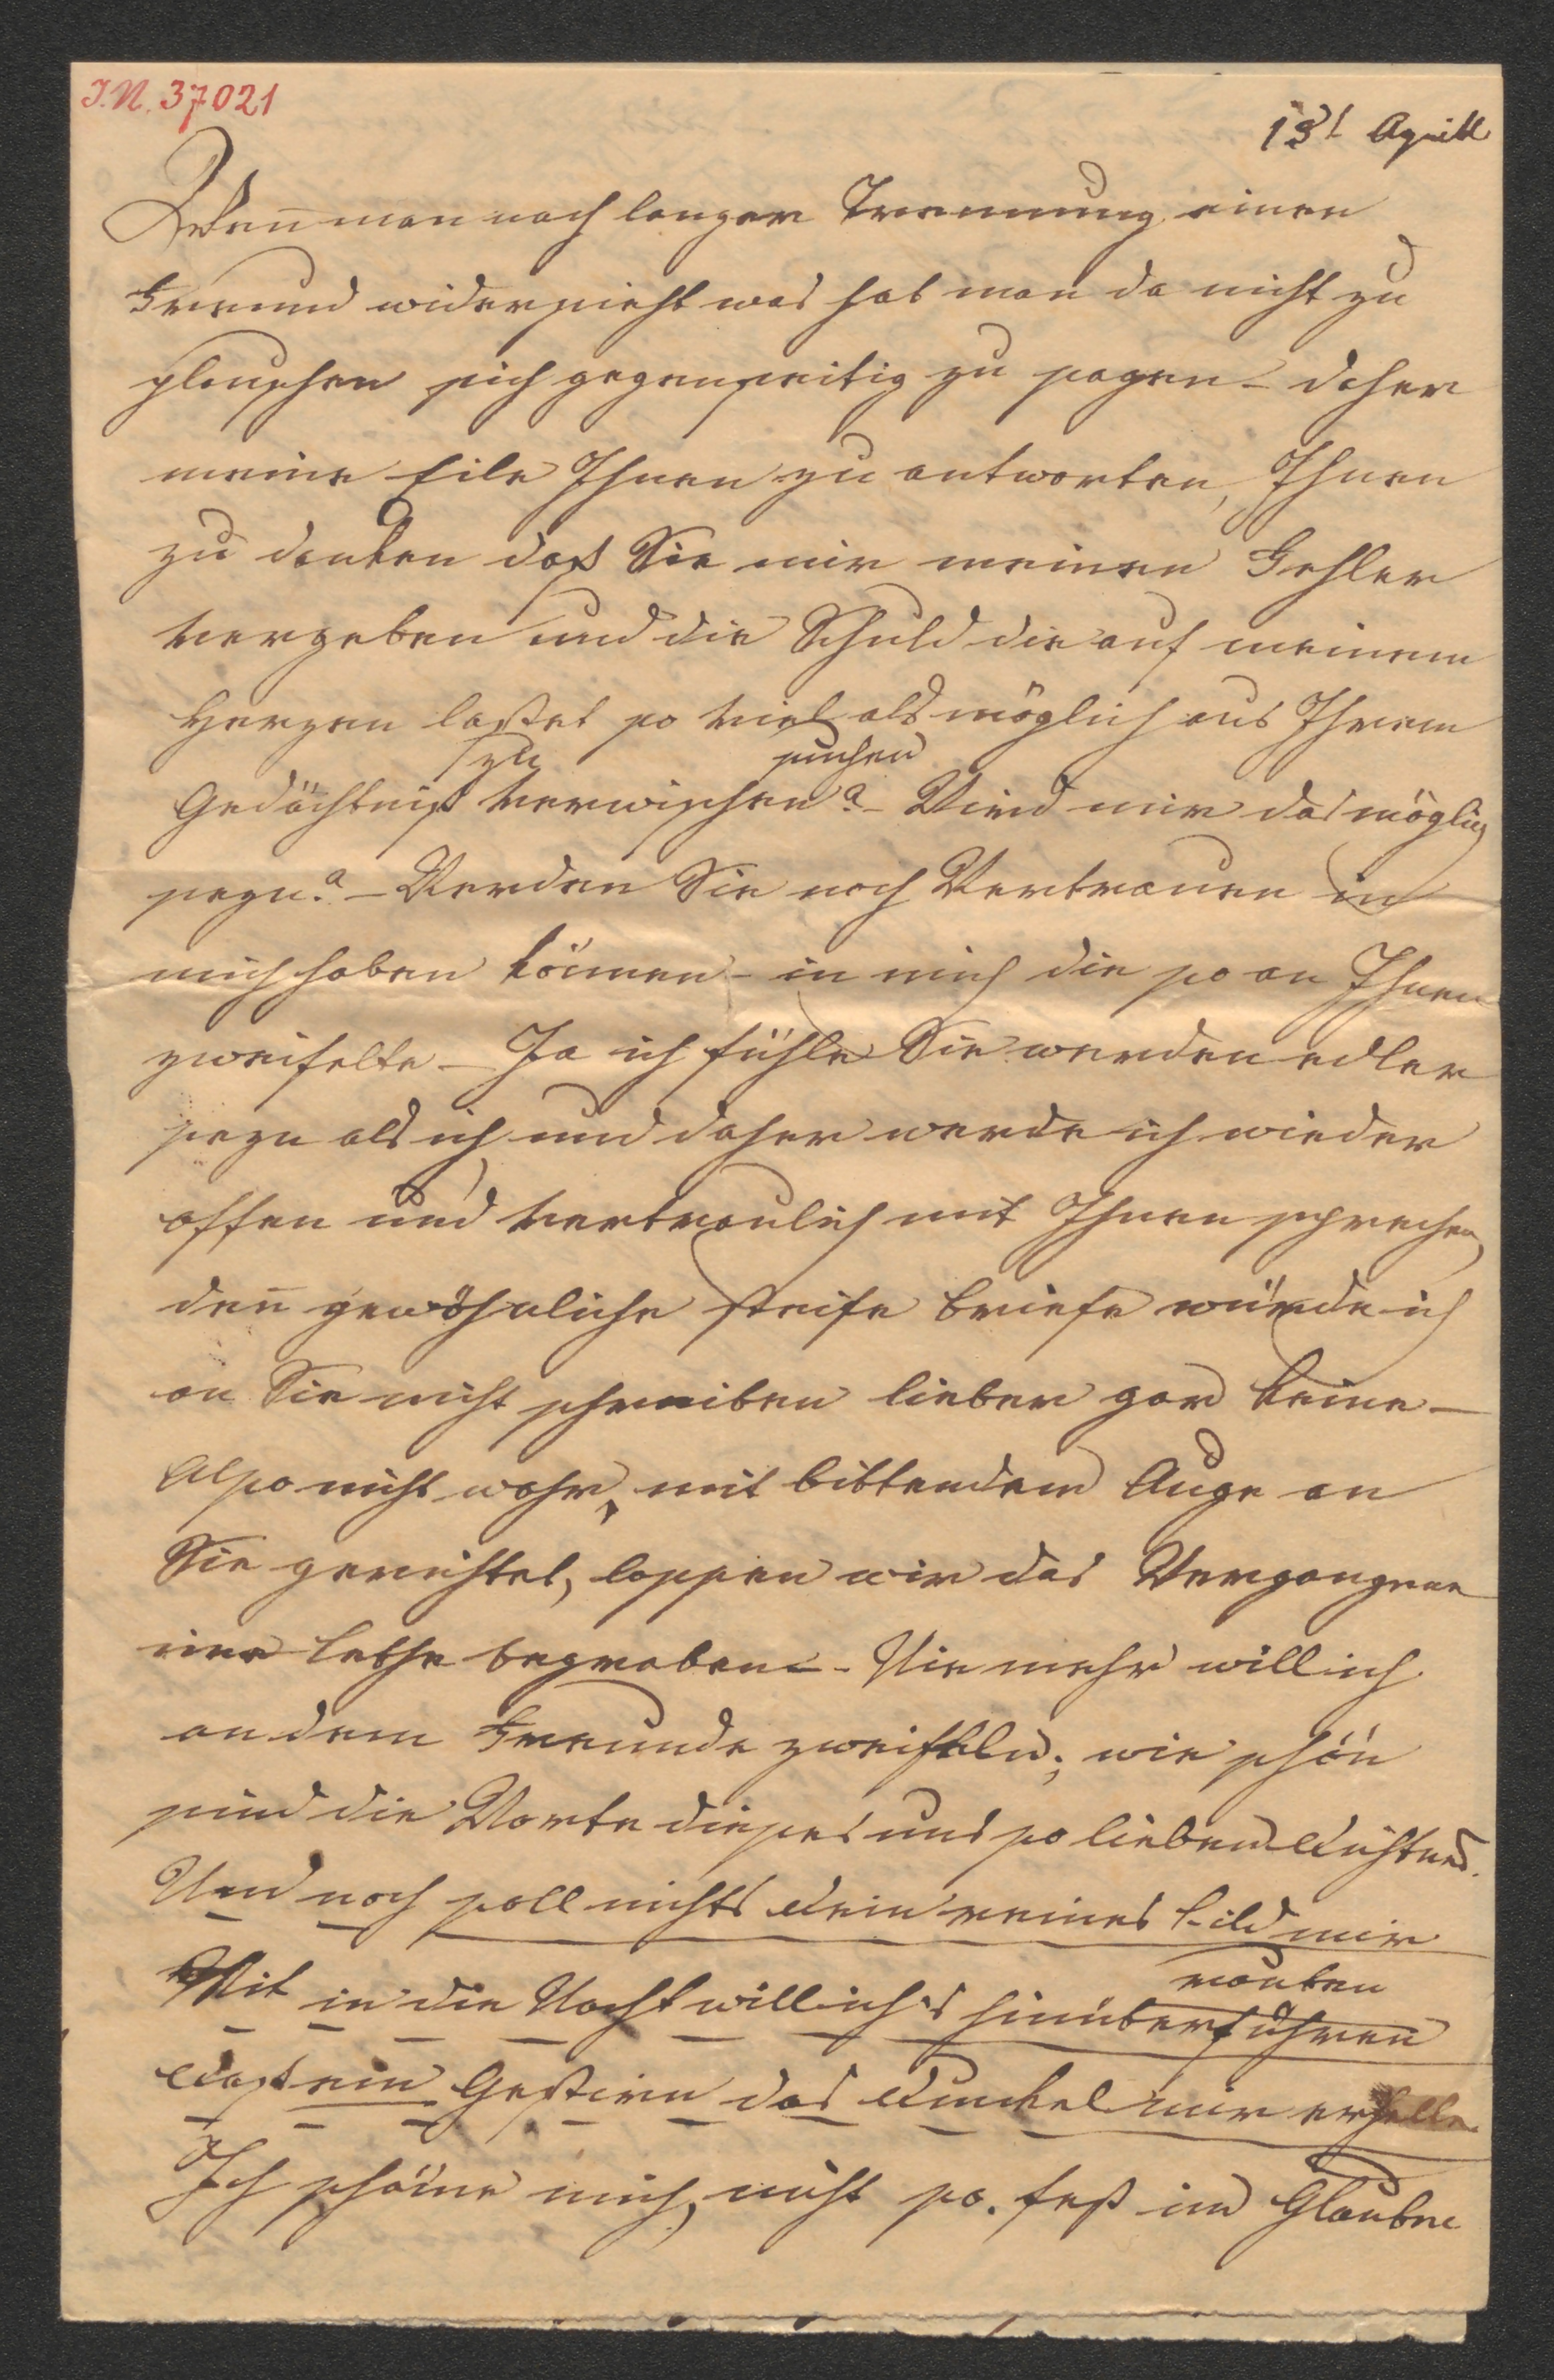 I.N. 37021
13t Aprill
Wen̄ man nach langer Trennung einen
Freund widersieht was hat man da nicht zu
plauschen sich gegenseitig zu sagen – daher
meine Eile Ihnen zu antworten, Ihnen
zu danken daß Sie mir meinen Fehler
vergeben und die Schuld die auf meinem
Herzen lastet so viel als möglich aus Ihrem
zu suchen
Gedächtniß verwischen? – Wird mir das möglich
seyn? – Werden Sie noch Vertrauen in
mich haben können – in mich die so an Ihnen
zweifelte – Ja ich fühle Sie werden edler
seyn als ich und daher werde ich wieder
offen und vertraulich mit Ihnen sprechen,
den̄ gewöhnliche steife Briefe würde ich
an Sie nicht schreiben lieber gar keine –
Also nicht wahr, mit bittendem Auge an
Sie gerichtet, lassen wir das Vergangene
in Lethe begraben – Nie mehr will ich
an dem Freunde zweifeln; wie schön
sind die Worte dieses uns so lieben Dichters.
Und noch soll nichts Dein reines Bild mir
rauben
Mit in die Nacht will ich's hinüberführen
Daß ein Gestirn das Dunckel mir erhelle
Ich schäme mich, nicht so fest im Glauben